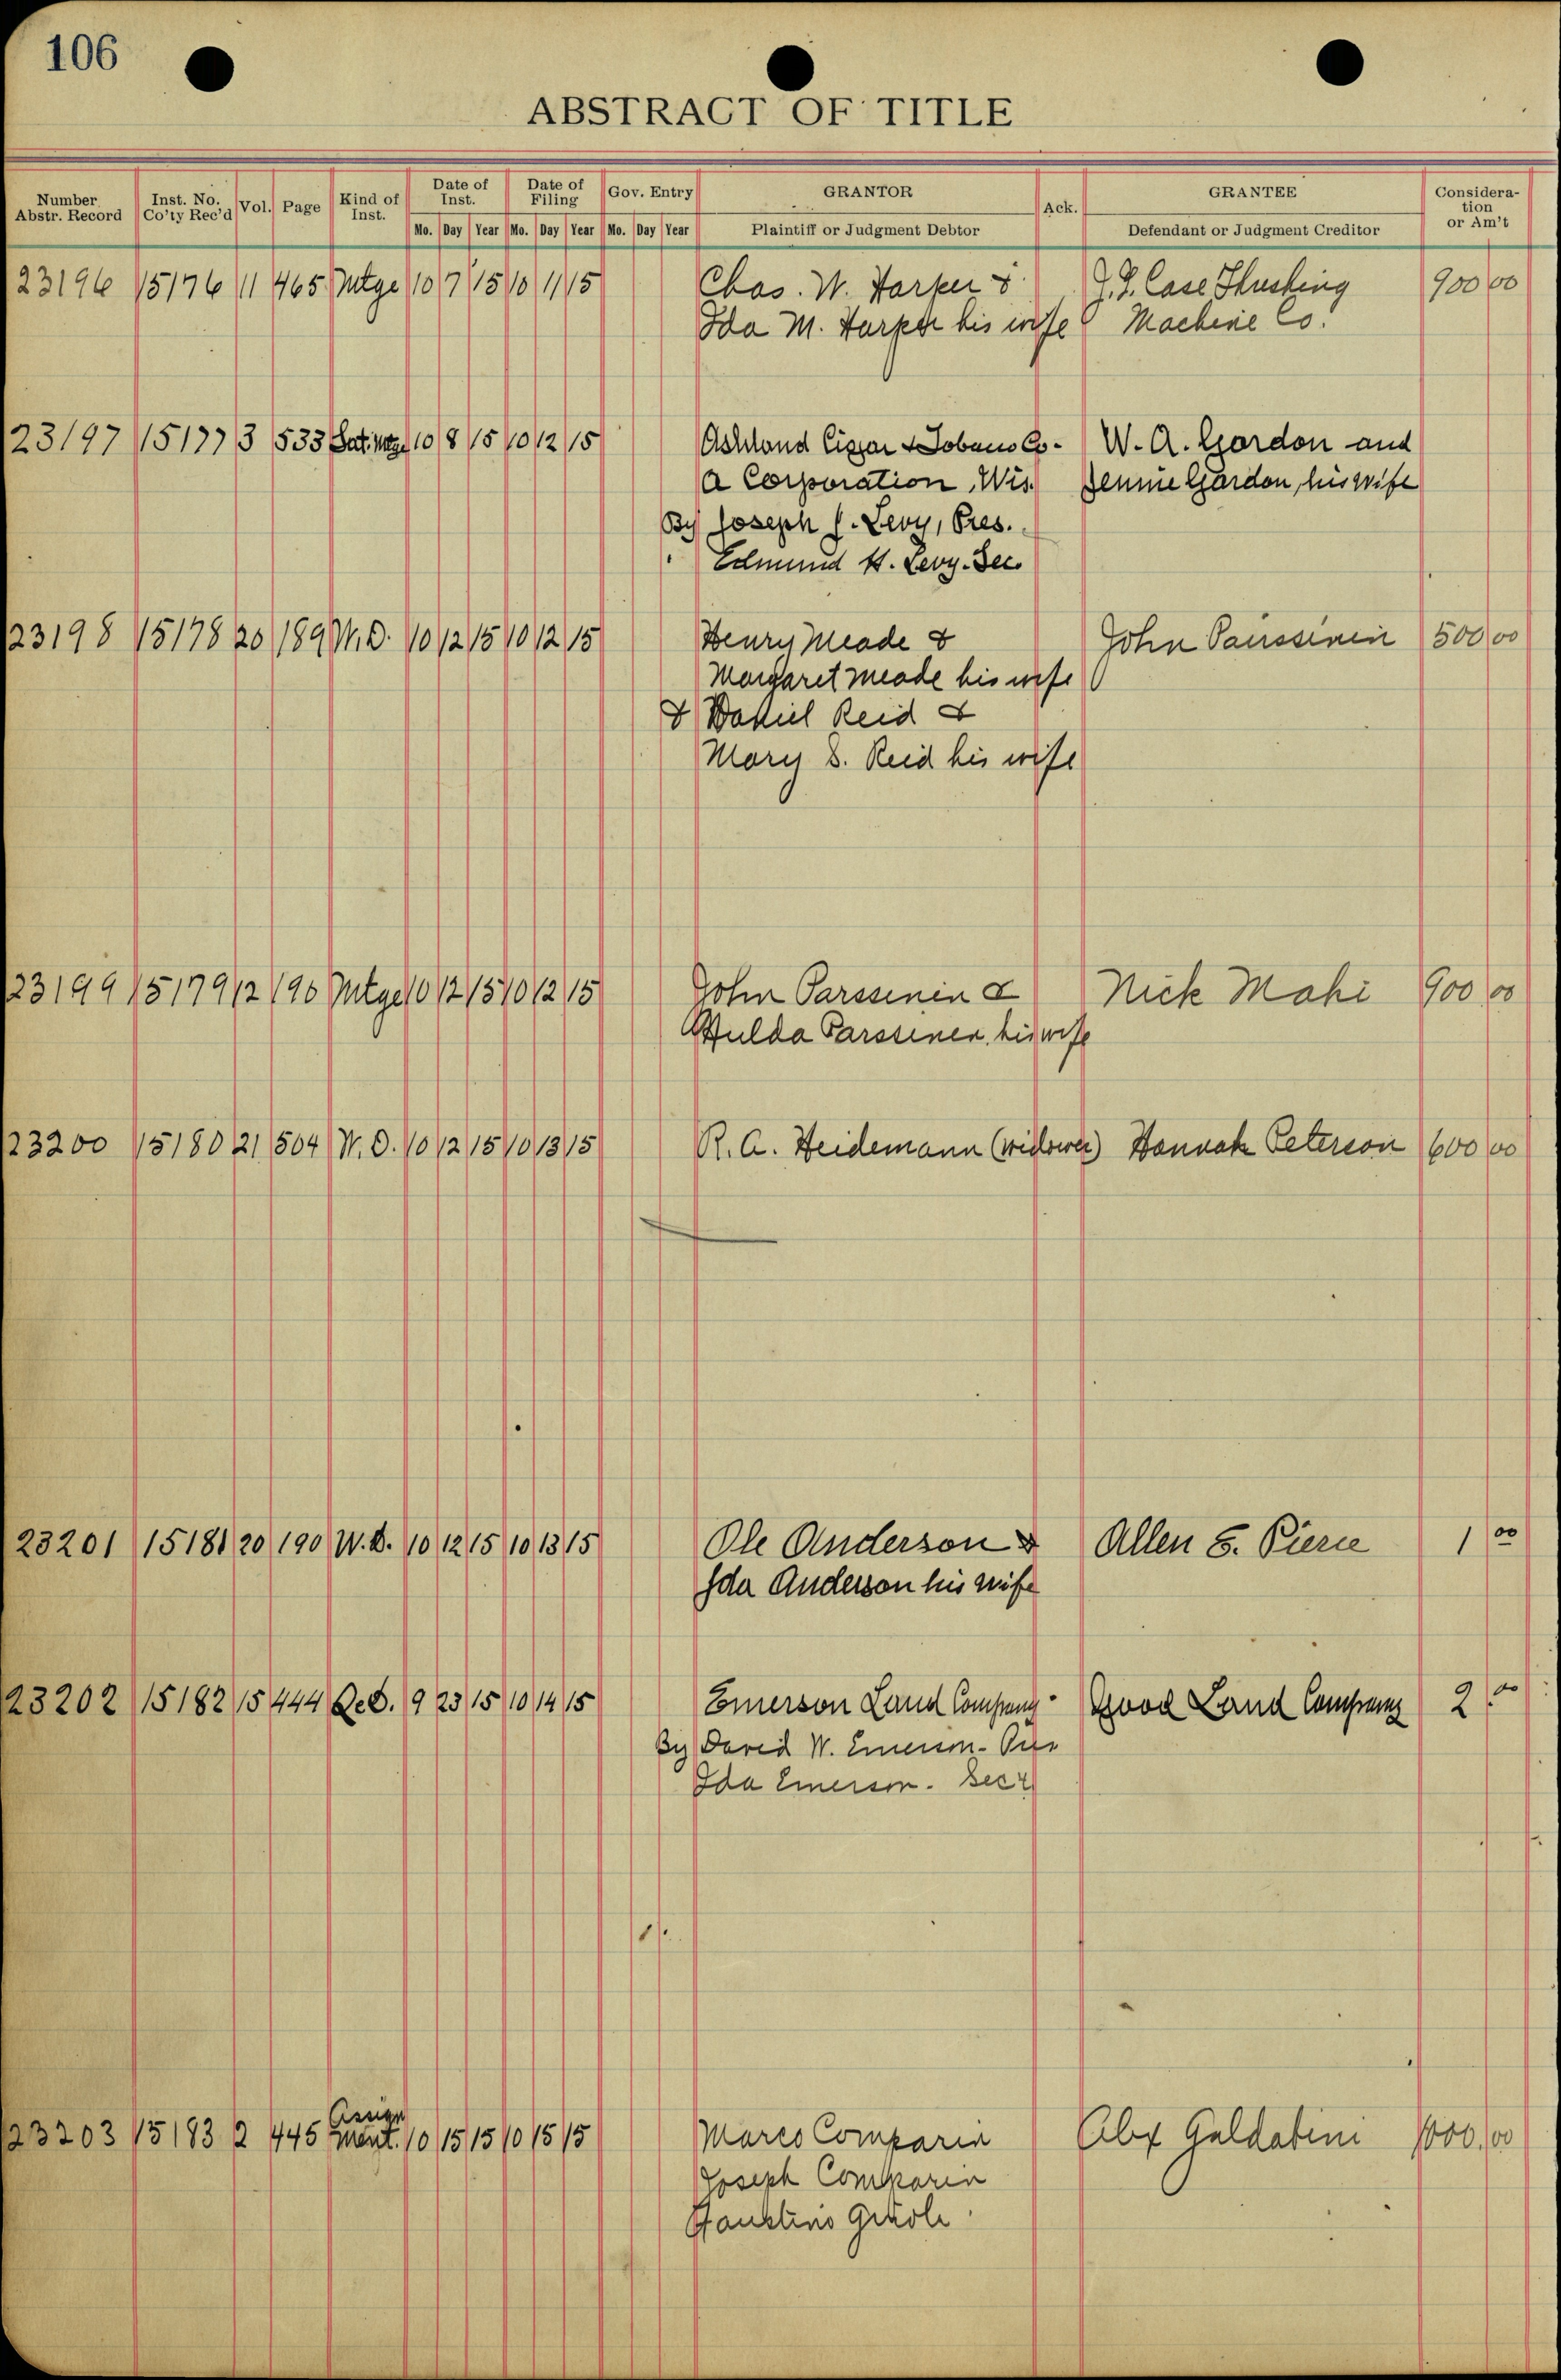 106
ABSTRACT OF TITLE
Number Abstr. Record | Inst. No. Co'ty Rec'd | Vol. | Page | Kind of Inst. | Date of Inst. Mo. Day Year | Date of Filing Mo. Day Year | Gov. Entry Mo. Day Year | GRANTOR Plaintiff or Judgment Debtor | Ack. | GRANTEE Defendant or Judgment Creditor | Consideration or Am't
23196 15176 11 465 Mtge 10 7 15 10 11 15 Chas. W. Harper & J. I. Case Threshing 900 00
Ida M. Harper his wife Machine Co.
23197 15177 3 533 Sat. Mtge 10 8 15 10 12 15 Ashland Cigar & Tobacco Co- W. A. Gordon and
A Corporation, Wis. Jennie Gordon, his wife
By Joseph J. Levy, Pres.
" Edmund H. Levy. Sec.
23198 15178 20 189 W.D. 10 12 15 10 12 15 Henry Meade & John Parssinin 500 00
Margaret Meade his wife
& Daniel Reid &
Mary S. Reid his wife
23199 15179 12 190 Mtge 10 12 15 10 12 15 John Parssinen & Nick Mahi 900 00
Hulda Parssinen, his wife
23200 15180 21 504 W.D. 10 12 15 10 13 15 R. A. Heidemann (widower) Hannah Peterson 600 00
23201 15181 20 190 W.D. 10 12 15 10 13 15 Ole Anderson & Allen S. Pierce 1 00
Ida Anderson his wife
23202 15182 15 444 Q.C.D. 9 23 15 10 14 15 Emerson Land Company- Good Land Company 2 00
By David W. Emerson- Pres
Ida Emerson. Secy
23203 15183 2 445 Assignment. 10 15 15 10 15 15 Marco Comparin Alex Galdabini 1000.00
Joseph Comparin
Faustino